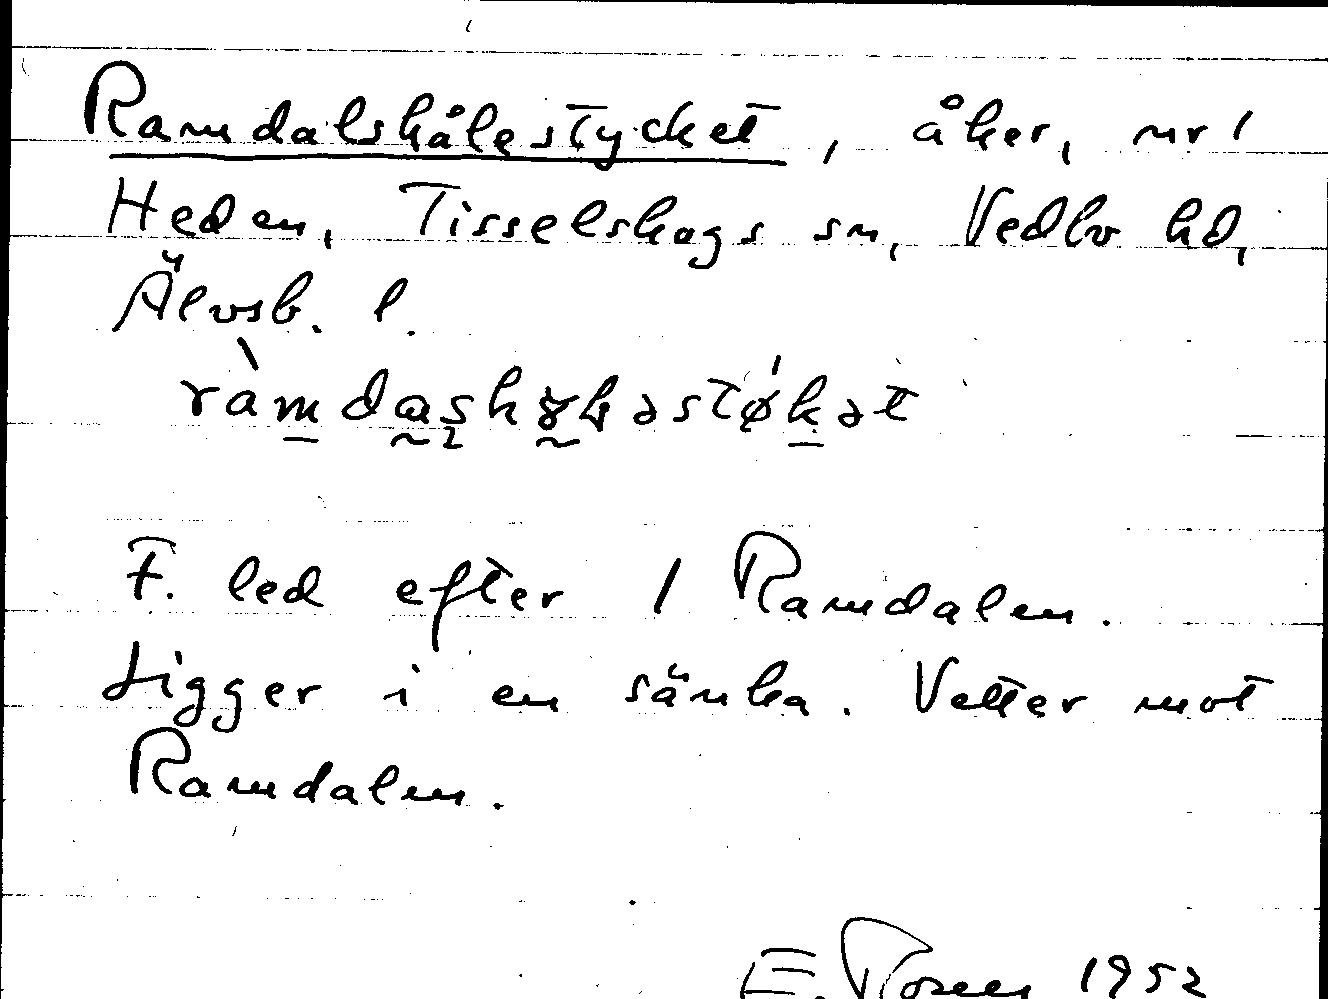 Ramdalshålestycket, åker, nr 1
Heden, Tisselskogs sn, Vedbo hd,
Älvsb. l.
F. led efter / Ramdalen.
Ligger i en sänka. Vetter mot
Ramdalen.
E. 1952